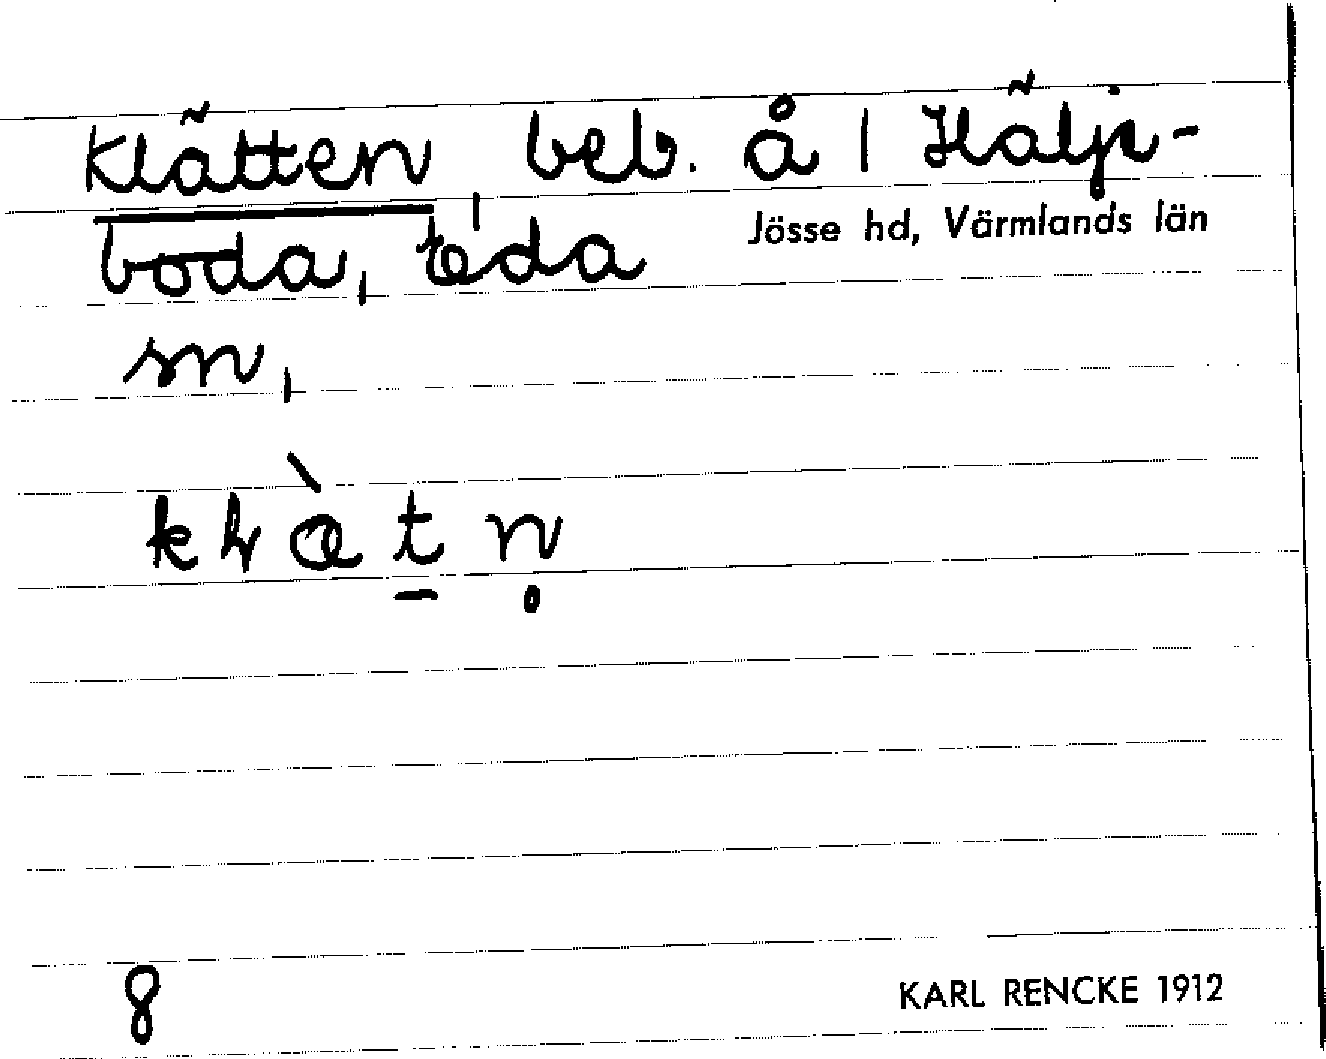 Klätten, beb. å 1 Hälje-
boda, Eda
Jösse hd, Värmlands län
sn,
8
KARL RENCKE 1912